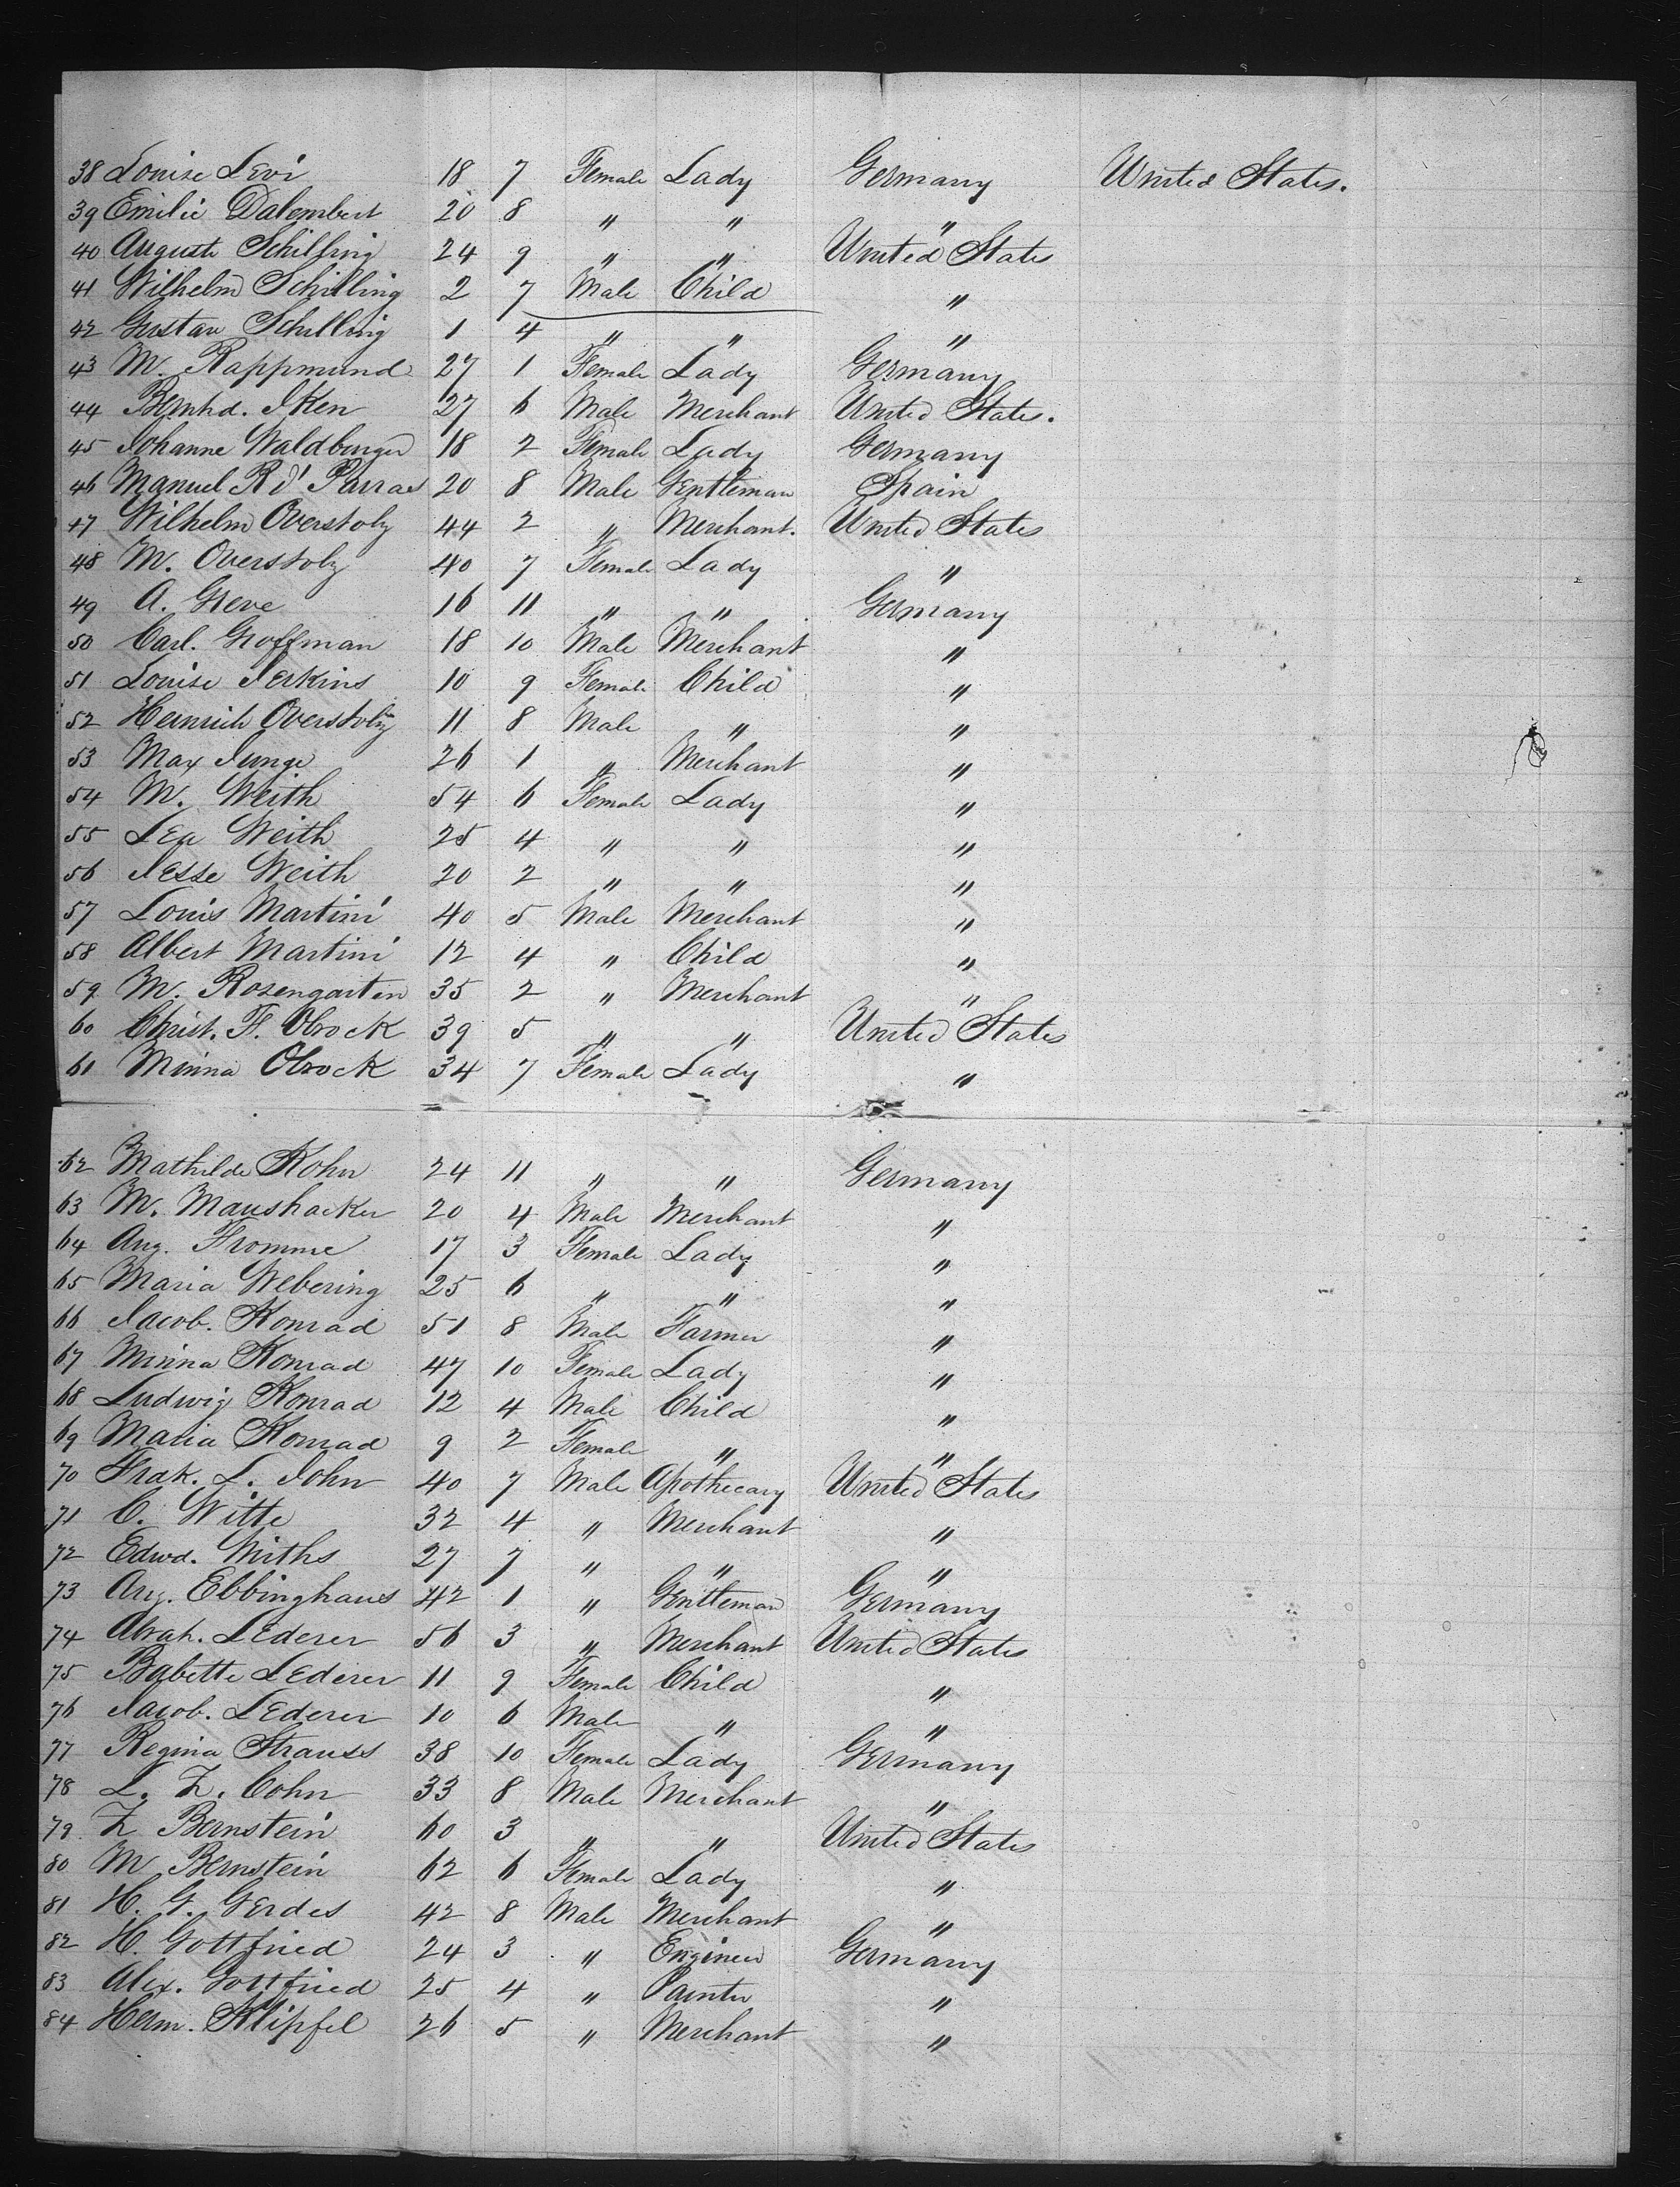 38 Louise Levi 18 7 Female Lady Germany United States.
39 Emilie Dalembert 20 8 " " "
40 Auguste Schilling 24 9 " " United States
41 Wilhelm Schilling 2 7 Male Child "
42 Gustav Schilling 1 4 " " "
43 M. Rappmund 27 1 Female Lady Germany
44 Bernhd. Iken 27 6 Male Merchant United States.
45 Johanne Waldburger 18 2 Female Lady Germany
46 Manuel R d' Parras 20 8 Male Gentleman Spain
47 Wilhelm Overstolz 44 2 " Merchant. United States
48 M. Overstolz 40 7 Female Lady "
49 A. Greve 16 11 " " Germany
50 Carl. Groffman 18 10 Male Merchant "
51 Louise Jerkins 10 9 Female Child "
52 Heinrich Overstolz 11 8 Male " "
53 Max Junge 26 1 " Merchant "
54 M. Weith 54 6 Female Lady "
55 Lea Weith 25 4 " " "
56 Jesse Weith 20 2 " " "
57 Louis Martini 40 5 Male Merchant "
58 Albert Martini 12 4 " Child "
59 M. Rosengarten 35 2 " Merchant "
60 Christ. F. Obrock 39 5 " " United States
61 Minna Obrock 34 7 Female Lady "
62 Mathilde Kohn 24 11 " " Germany
63 M. Maushacker 20 4 Male Merchant "
64 Aug. Fromme 17 3 Female Lady "
65 Maria Webering 25 6 " " "
66 Jacob. Konrad 51 8 Male Farmer "
67 Minna Konrad 47 10 Female Lady "
68 Ludwig Konrad 12 4 Male Child "
69 Maria Konrad 9 2 Female " "
70 Frdk. L. John 40 7 Male Apothecary United States
71 C. Witte 32 4 " Merchant "
72 Edwd. Withs 27 7 " " "
73 Aug. Ebbinghaus 42 1 " Gentleman Germany
74 Abrah. Lederer 56 3 " Merchant United States
75 Babette Lederer 11 9 Female Child "
76 Jacob. Lederer 10 6 Male " "
77 Regina Strauss 38 10 Female Lady Germany
78 L. Z. Cohn 33 8 Male Merchant "
79 Z Bernstein 60 3 " " United States
80 M Bernstein 62 6 Female Lady "
81 H. G. Gerdes 42 8 Male Merchant "
82 H. Gottfried 24 3 " Engineer Germany
83 Alex. Gottfried 25 4 " Painter "
84 Herm. Klipfel 26 5 " Merchant "